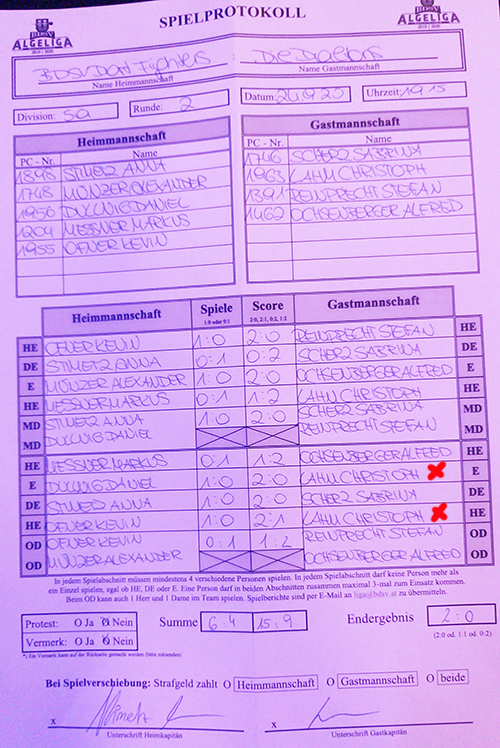 BDSV
ALGELIGA
SPIELPROTOKOLL
BDSV
ALGELIGA
Name Heimmannschaft
Name Gastmannschaft
Division: 5a
Runde: 2
Datum:
Uhrzeit: 19 15
Heimmannschaft
Gastmannschaft
PC - Nr. Name
PC - Nr. Name
1898 STIMETZ ANNA
1746 SCHERZ SABRINA
1748 MÜNZER ALEXANDER
1963 KAHM CHRISTOPH
1956 DANIEL
1391 REINPRECHT STEFAN
1204 MESSNER MARKUS
1462 OCHSENBERGER ALFRED
1955 OFNER KEVIN
Heimmannschaft Spiele Score Gastmannschaft
1:0 oder 0:1 2:0, 2:1, 0:2, 1:2
HE OFNER KEVIN 1:0 2:0 REINPRECHT STEFAN HE
DE STIMETZ ANNA 0:1 0:2 SCHERZ SABRINA DE
E MÜNZER ALEXANDER 1:0 2:0 OCHSENBERGER ALFRED E
HE MESSNER MARKUS 0:1 1:2 KAHM CHRISTOPH HE
MD STIMETZ ANNA 1:0 2:0 SCHERZ SABRINA MD
MD DANIEL REINPRECHT STEFAN MD
HE MESSNER MARKUS 0:1 1:2 OCHSENBERGER ALFRED HE
E DANIEL 1:0 2:0 KAHM CHRISTOPH E
DE STIMETZ ANNA 1:0 2:0 SCHERZ SABRINA DE
HE OFNER KEVIN 1:0 2:1 KAHM CHRISTOPH HE
OD OFNER KEVIN 0:1 1:2 REINPRECHT STEFAN OD
OD MÜNZER ALEXANDER OCHSENBERGER ALFRED OD
In jedem Spielabschnitt müssen mindestens 4 verschiedene Personen spielen. In jedem Spielabschnitt darf keine Person mehr als
ein Einzel spielen, egal ob HE, DE oder E. Eine Person darf in beiden Abschnitten zusammen maximal 3-mal zum Einsatz kommen.
Beim OD kann auch 1 Herr und 1 Dame im Team spielen. Spielberichte sind per E-Mail an liga@bdsv.at zu übermitteln.
Protest: O Ja O Nein Summe 6:4 15:9 Endergebnis 2:0
Vermerk: O Ja O Nein (2:0 od. 1:1 od. 0:2)
*) Ein Vermerk kann auf der Rückseite gemacht werden (bitte ankreuzen)
Bei Spielverschiebung: Strafgeld zahlt O Heimmannschaft O Gastmannschaft O beide
x x
Unterschrift Heimkapitän Unterschrift Gastkapitän